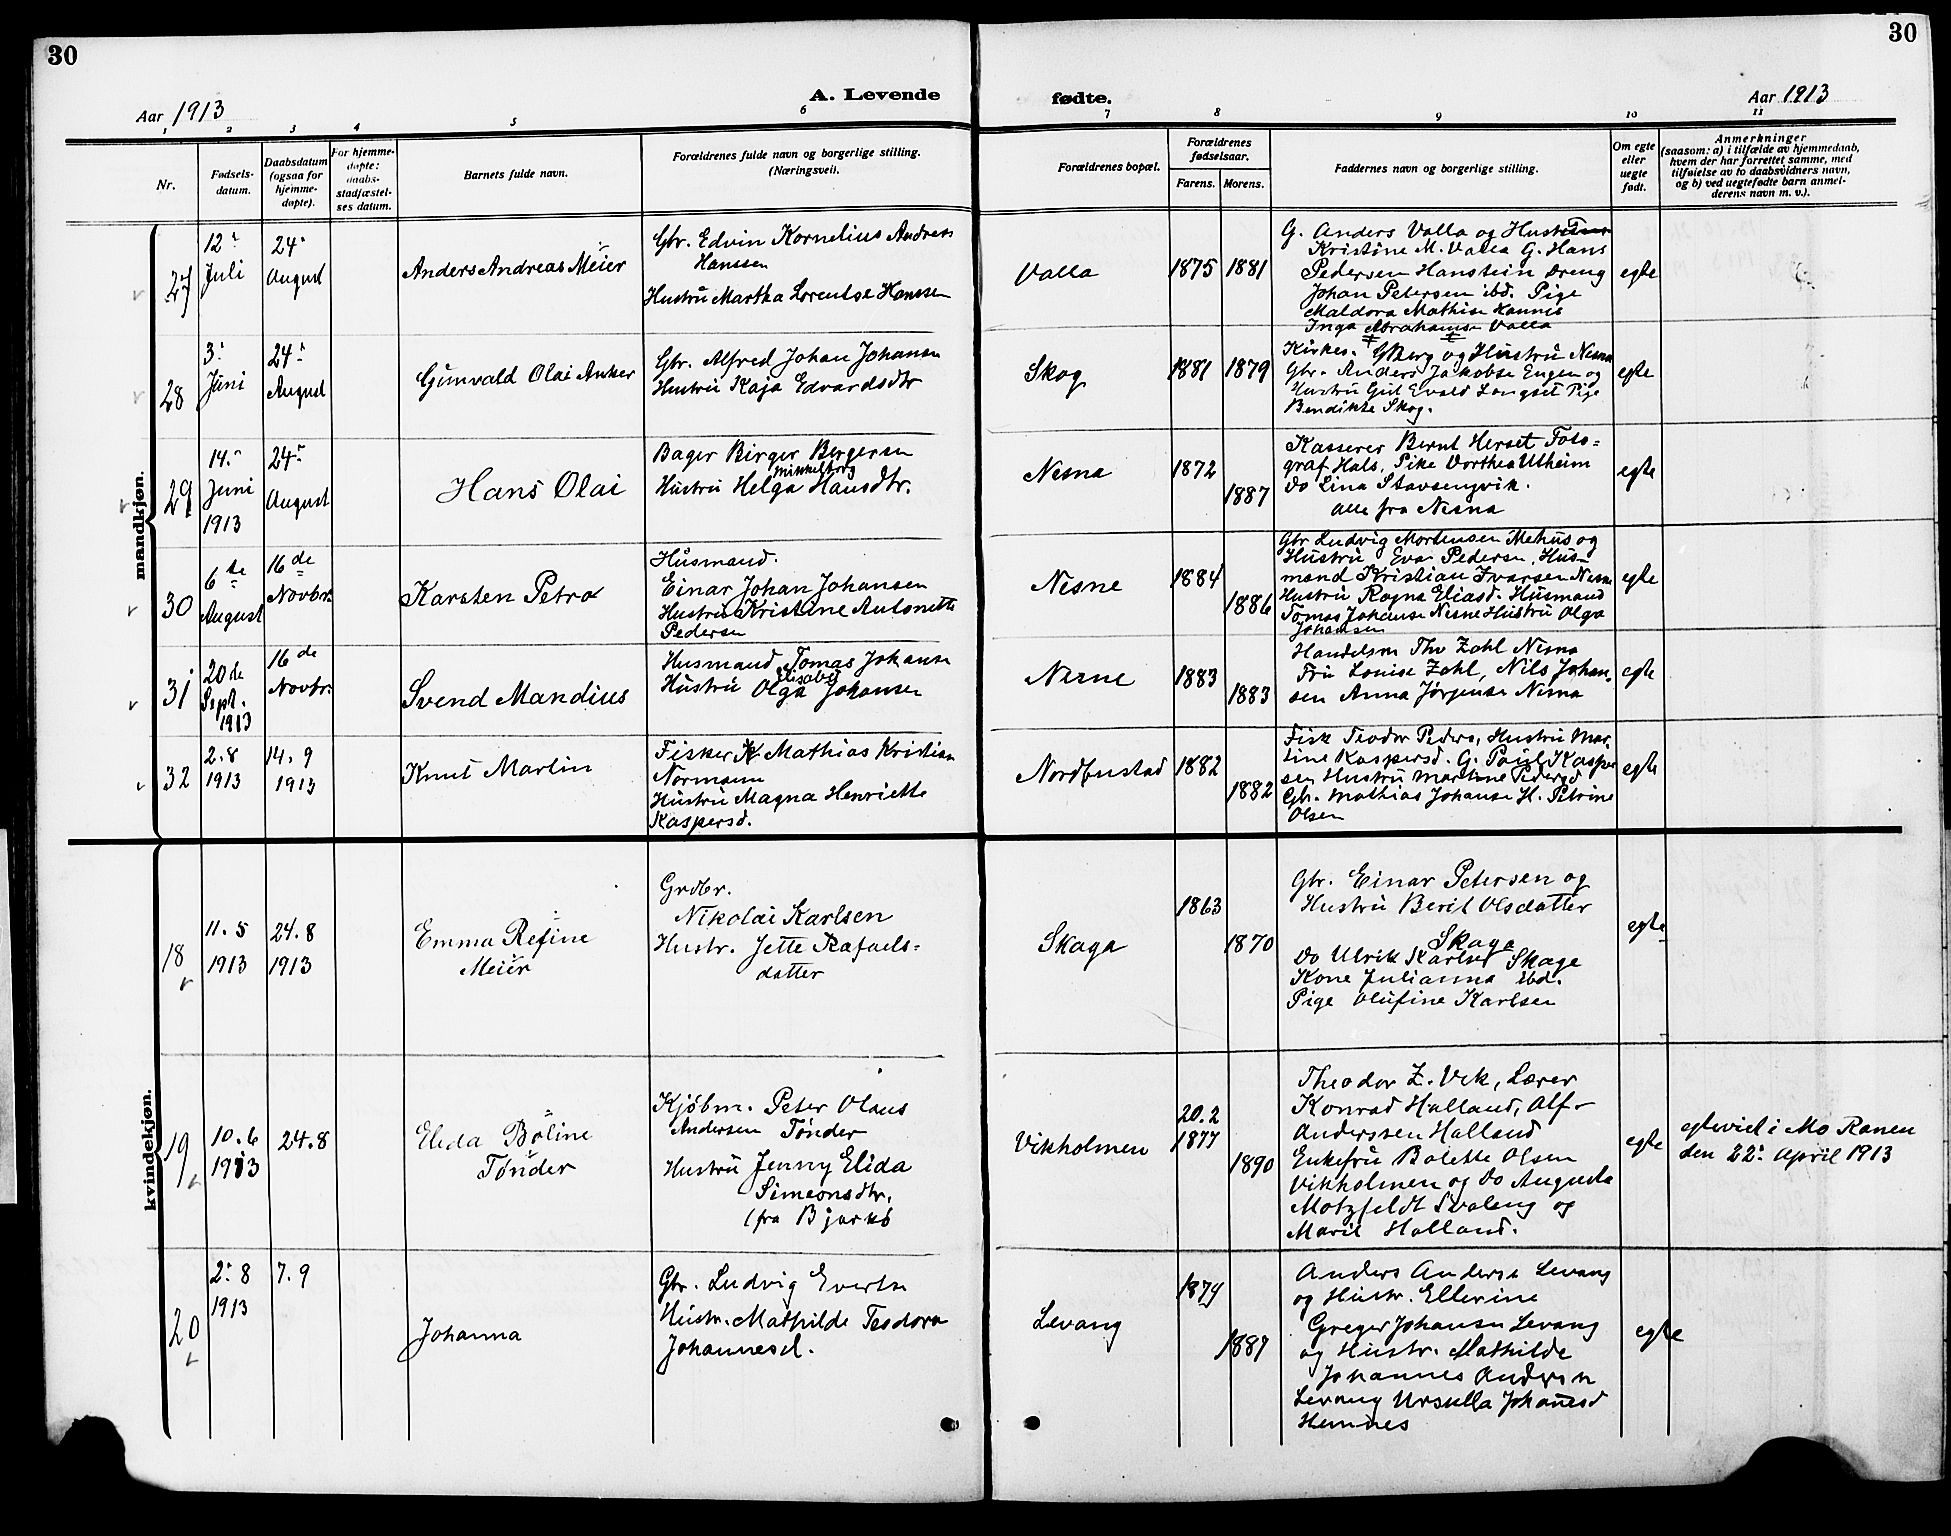 30
30
Aar 1913
A. Levende
fødte.
Aar 1913
1 2 3 4 5 6 7 8 9 10 11
Nr.
Fødsels-
datum.
Daabsdatum
(ogsaa for
hjemme-
døpte).
For hjemme-
døpte:
daabs-
stadfæstel-
ses datum.
Barnets fulde navn.
Forældrenes fulde navn og borgerlige stilling.
(Næringsvei).
Forældrenes bopæl.
Forældrenes
fødselsaar.
Farens. Morens.
Faddernes navn og borgerlige stilling.
Om egte
eller
uegte
født.
Anmerkninger
(saasom: a) i tilfælde av hjemmedaab,
hvem der har forrettet samme, med
tilføielse av to daabsvidners navn,
og b) ved uegtefødte barn anmel-
derens navn m. v.).
mandkjøn.
27
12
Juli
24
August
Anders Andreas Meier
Gbr. Edvin Kornelius Andreas
Hanssen
Hustru Martha Lorentse Hanssen
Valla
1875
1881
G. Anders Valla og Hustru
Kristine M. Valla G. Hans
Pedersen Hanstein Dreng
Johan Petersen ibd. Pige
Maldora Mathise Hannes
Inga Abrahamse Valla
egte
28
3
Juni
24
August
Gunvald Olai Anker
Gbr. Alfred Johan Johansen
Hustru Kaja Edvardsdtr
Skog
1881
1879
Kirkes. Gberg og Hustru Nesna
Gbr. Anders Jakobse Engen og
Hustru Gut Evald Langset Pige
Bendikte Skog.
egte
29
14
Juni
1913
24
August
Hans Olai
Bager Birger Bergersen
Mikkelborg
Hustru Helga Hansdtr.
Nesna
1872
1887
Kasserer Bernt Herset Foto=
graf Hals, Pike Dorthea Utheim
Do Lina Stavsengvik.
alle fra Nesna
egte
30
6te
August
16de
Novbr.
Karsten Petro
Husmand.
Einar Johan Johansen
Hustru Kristine Antonette
Pedersen
Nesne
1884
1886
Gbr Ludvig Mortensen Mehus og
Hustru Eva Pedersen, Hus-
mand Kristian Ivarsen Nesne
Hustru Ragna Eliasd. Husmand
Tomas Johanse Nesne Hustru Olga
Johansen
egte
31
20de
Sept.
1913
16de
Novbr.
Svend Mandius
Husmand Tomas Johanse
Elisabet
Hustru Olga Johansen
Nesne
1883
1883
Handelsm Thv Zahl Nesna
Fru Louise Zahl, Nils Johan-
sen Anna Jørgense Nesna
egte
32
2.8
1913
14.9
1913
Knut Martin
Fisker K Mathias Kristian
Normann
Hustru Magna Henriette
Kaspersd.
Nordbustad
1882
1882
Fisk Teodor Peders, Hustru Mar-
tine Kaspersd. G. Paul Kasper
sen Hustru Martine Pedersd
Gbr. Mathias Johanse H. Petrine
Olsen
egte
kvindekjøn.
18
11.5
1913
24.8
1913
Emma Refine
Meier
Grdbr.
Nikolai Karlsen
Hustr. Jette Rafaels-
datter
Skaga
1863
1870
Gbr. Einar Petersen og
Hustru Berit Olsdatter
Skaga
Do Ulrik Karlsen Skage
Kone Julianna ibd.
Pige Olufine Karlsen
egte
19
10.6
1913
24.8
Elida Boline
Tønder
Kjøbm. Peter Olaus
Andersen Tønder
Hustru Jenny Elida
Simeonsdtr.
(fra Bjarkö
Vikholmen
20.2
1877
1890
Theodor Z. Vik, Lærer
Konrad Halland, Alf-
Anderssen Halland
Enkefru Bolette Olsen
Vikholmen og Do Augusta
Motzfeldt Svaleng og
Marit Halland.
egte
egteviet i Mo Ranen
den 22. April 1913
20
2. 8
1913
7.9
Johanna
Gbr. Ludvig Evertsn
Hustr. Mathilde Teodora
Johannesd.
Levang
1879
1887
Anders Anderse Levang
og Hustr. Ellerine
Greger Johansn Levang
og Hustr. Mathilde
Johannes Andersn
Levang Ursulla Johanesd
Hemnes
egte